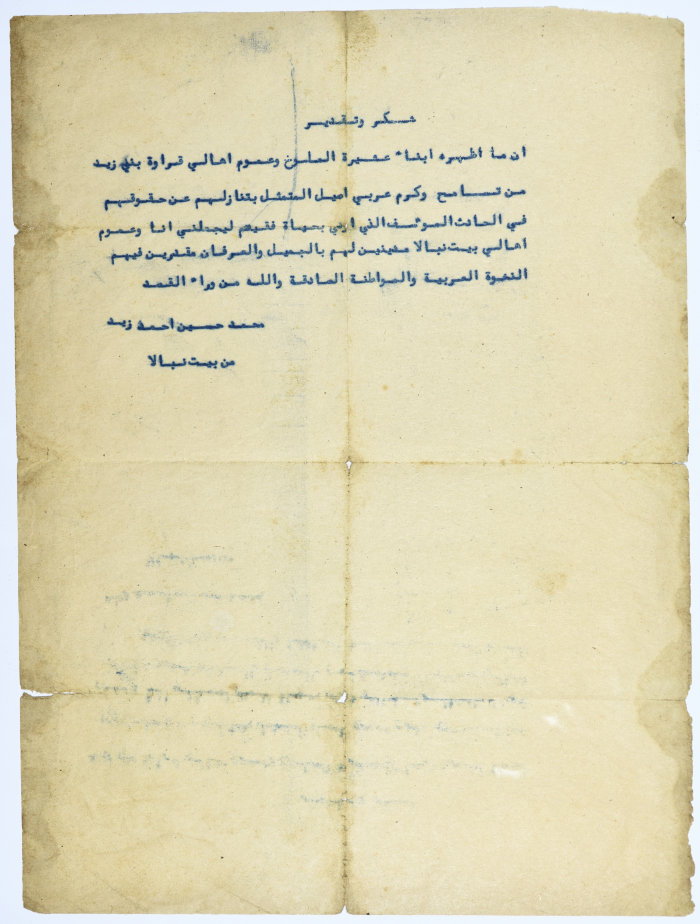 شكر وتقدير
ان ما اظهره ابناء عشيرة الملوخ وعموم اهالي قراوة بني زيد
من تسامح وكرم عربي اصيل المتمثل بتنازلهم عن حقوقهم
في الحادث المؤسف الذي اودى بحياة فقيدهم ليجعلني انا وعموم
اهالي بيت نبالا مدينين لهم بالجميل والعرفان مقدرين فيهم
النخوة العربية والمواطنة الصادقة والله من وراء القصد
محمد حسين احمد زيد
من بيت نبالا